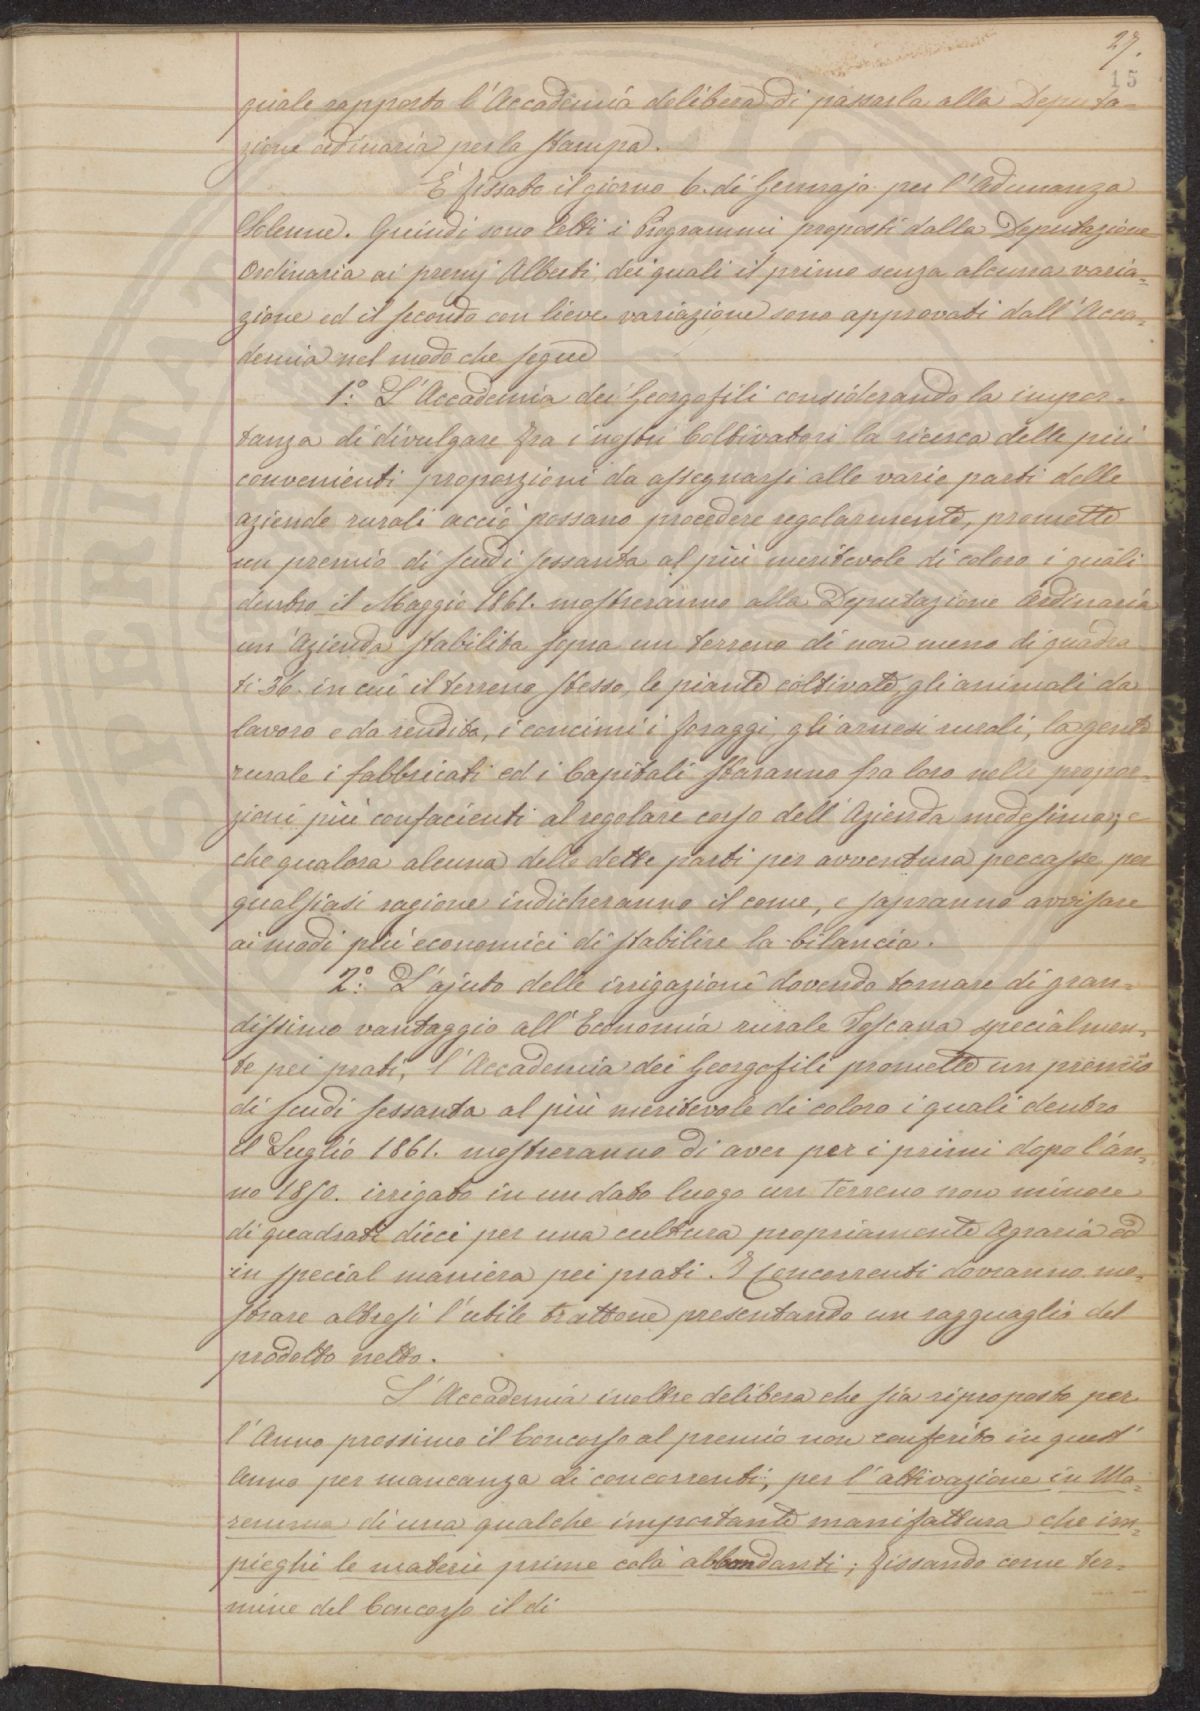 27.
15
quale rapporto l'Accademia delibera di passarla alla Deputa-
zione ordinaria per la stampa.
È fissato il giorno 6. di Gennajo per l'Adunanza
Solenne. Quindi sono letti i Programmi proposti dalla Deputazione
Ordinaria ai premj Alberti, dei quali il primo senza alcuna varia-
zione ed il secondo con lieve variazione sono approvati dall'Acca-
demia nel modo che segue
1.° L'Accademia dei Georgofili considerando la impor-
tanza di divulgare fra i nostri Coltivatori la ricerca delle più
convenienti proporzioni da assegnarsi alle varie parti delle
aziende rurali acciò possano procedere regolarmente, promette
un premio di scudi sessanta al più meritevole di coloro i quali
dentro il Maggio 1861. mostreranno alla Deputazione Ordinaria
un'Azienda stabilita sopra un terreno di non meno di quadra
ti 36. in cui il terreno stesso, le piante coltivate, gli animali da
lavoro e da rendita, i concimi i foraggi, gli arnesi rurali, la gente
rurale i fabbricati ed i Capitali staranno fra loro nelle propor-
zioni più confacienti al regolare corso dell'Azienda medesima; e
che qualora alcuna delle dette parti per avventura peccasse per
qualsiasi ragione indicheranno il come, e sapranno avvisare
ai modi più economici di stabilire la bilancia.
2.° L'ajuto delle irrigazioni dovendo tornare di gran-
dissimo vantaggio all'Economia rurale Toscana specialmen-
te pei prati, l'Accademia dei Georgofili promette un premio
di scudi sessanta al più meritevole di coloro i quali dentro
il Luglio 1861. mostreranno di aver per i primi dopo l'an-
no 1850. irrigato in un dato luogo un terreno non minore
di quadrati dieci per una cultura propriamente Agraria ed
in special maniera pei prati. I Concorrenti dovranno mo-
strare altresì l'utile trattone presentando un ragguaglio del
prodotto netto.
L'Accademia inoltre delibera che sia riproposto per
l'Anno prossimo il Concorso al premio non conferito in quest'
Anno per mancanza di concorrenti, per l'attivazione in Ma-
remma di una qualche importante manifattura che im-
pieghi le materie prime colà abbondanti; fissando come ter-
mine del Concorso il dì